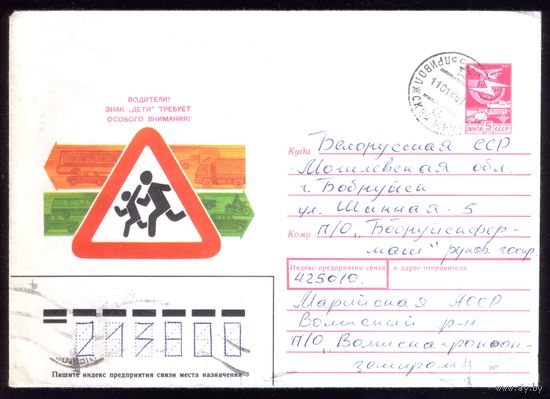 ВОДИТЕЛИ!
ЗНАК „ДЕТИ" ТРЕБУЕТ
ОСОБОГО ВНИМАНИЯ!
ПРИВОЛЖСКИЙ
ПОЧТА 5 К СССР
Куда Белорусская ССР
Могилевская обл.
г. Бобруйск
ул. Шинная - 5
Кому П/О, „Бобруйскфер-
маш"
Индекс предприятия связи и адрес отправителя
425010.
Марийская АССР
Волжский р-н
П/О,
213800
Пишите индекс предприятия связи места назначения
www.ay.by